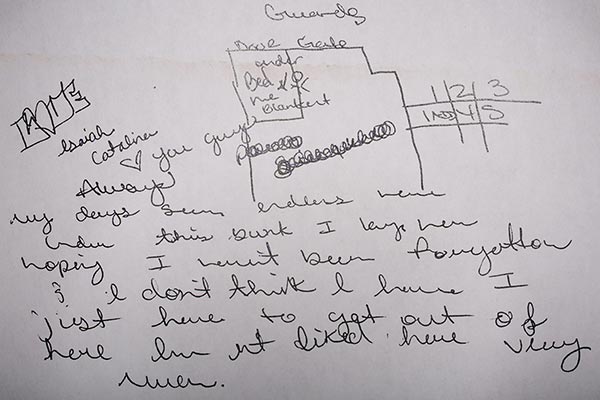 Guards
Door Gate
under
Bed
me
Blankert
1 2 3
4 5
Isaiah
Catalina
♡ you guys
Always
my days seem endless here
under this bunk I lay here
hoping I havn't been forgotton
& I don't think I have I
just have to get out of
here Im nt liked here very
much.